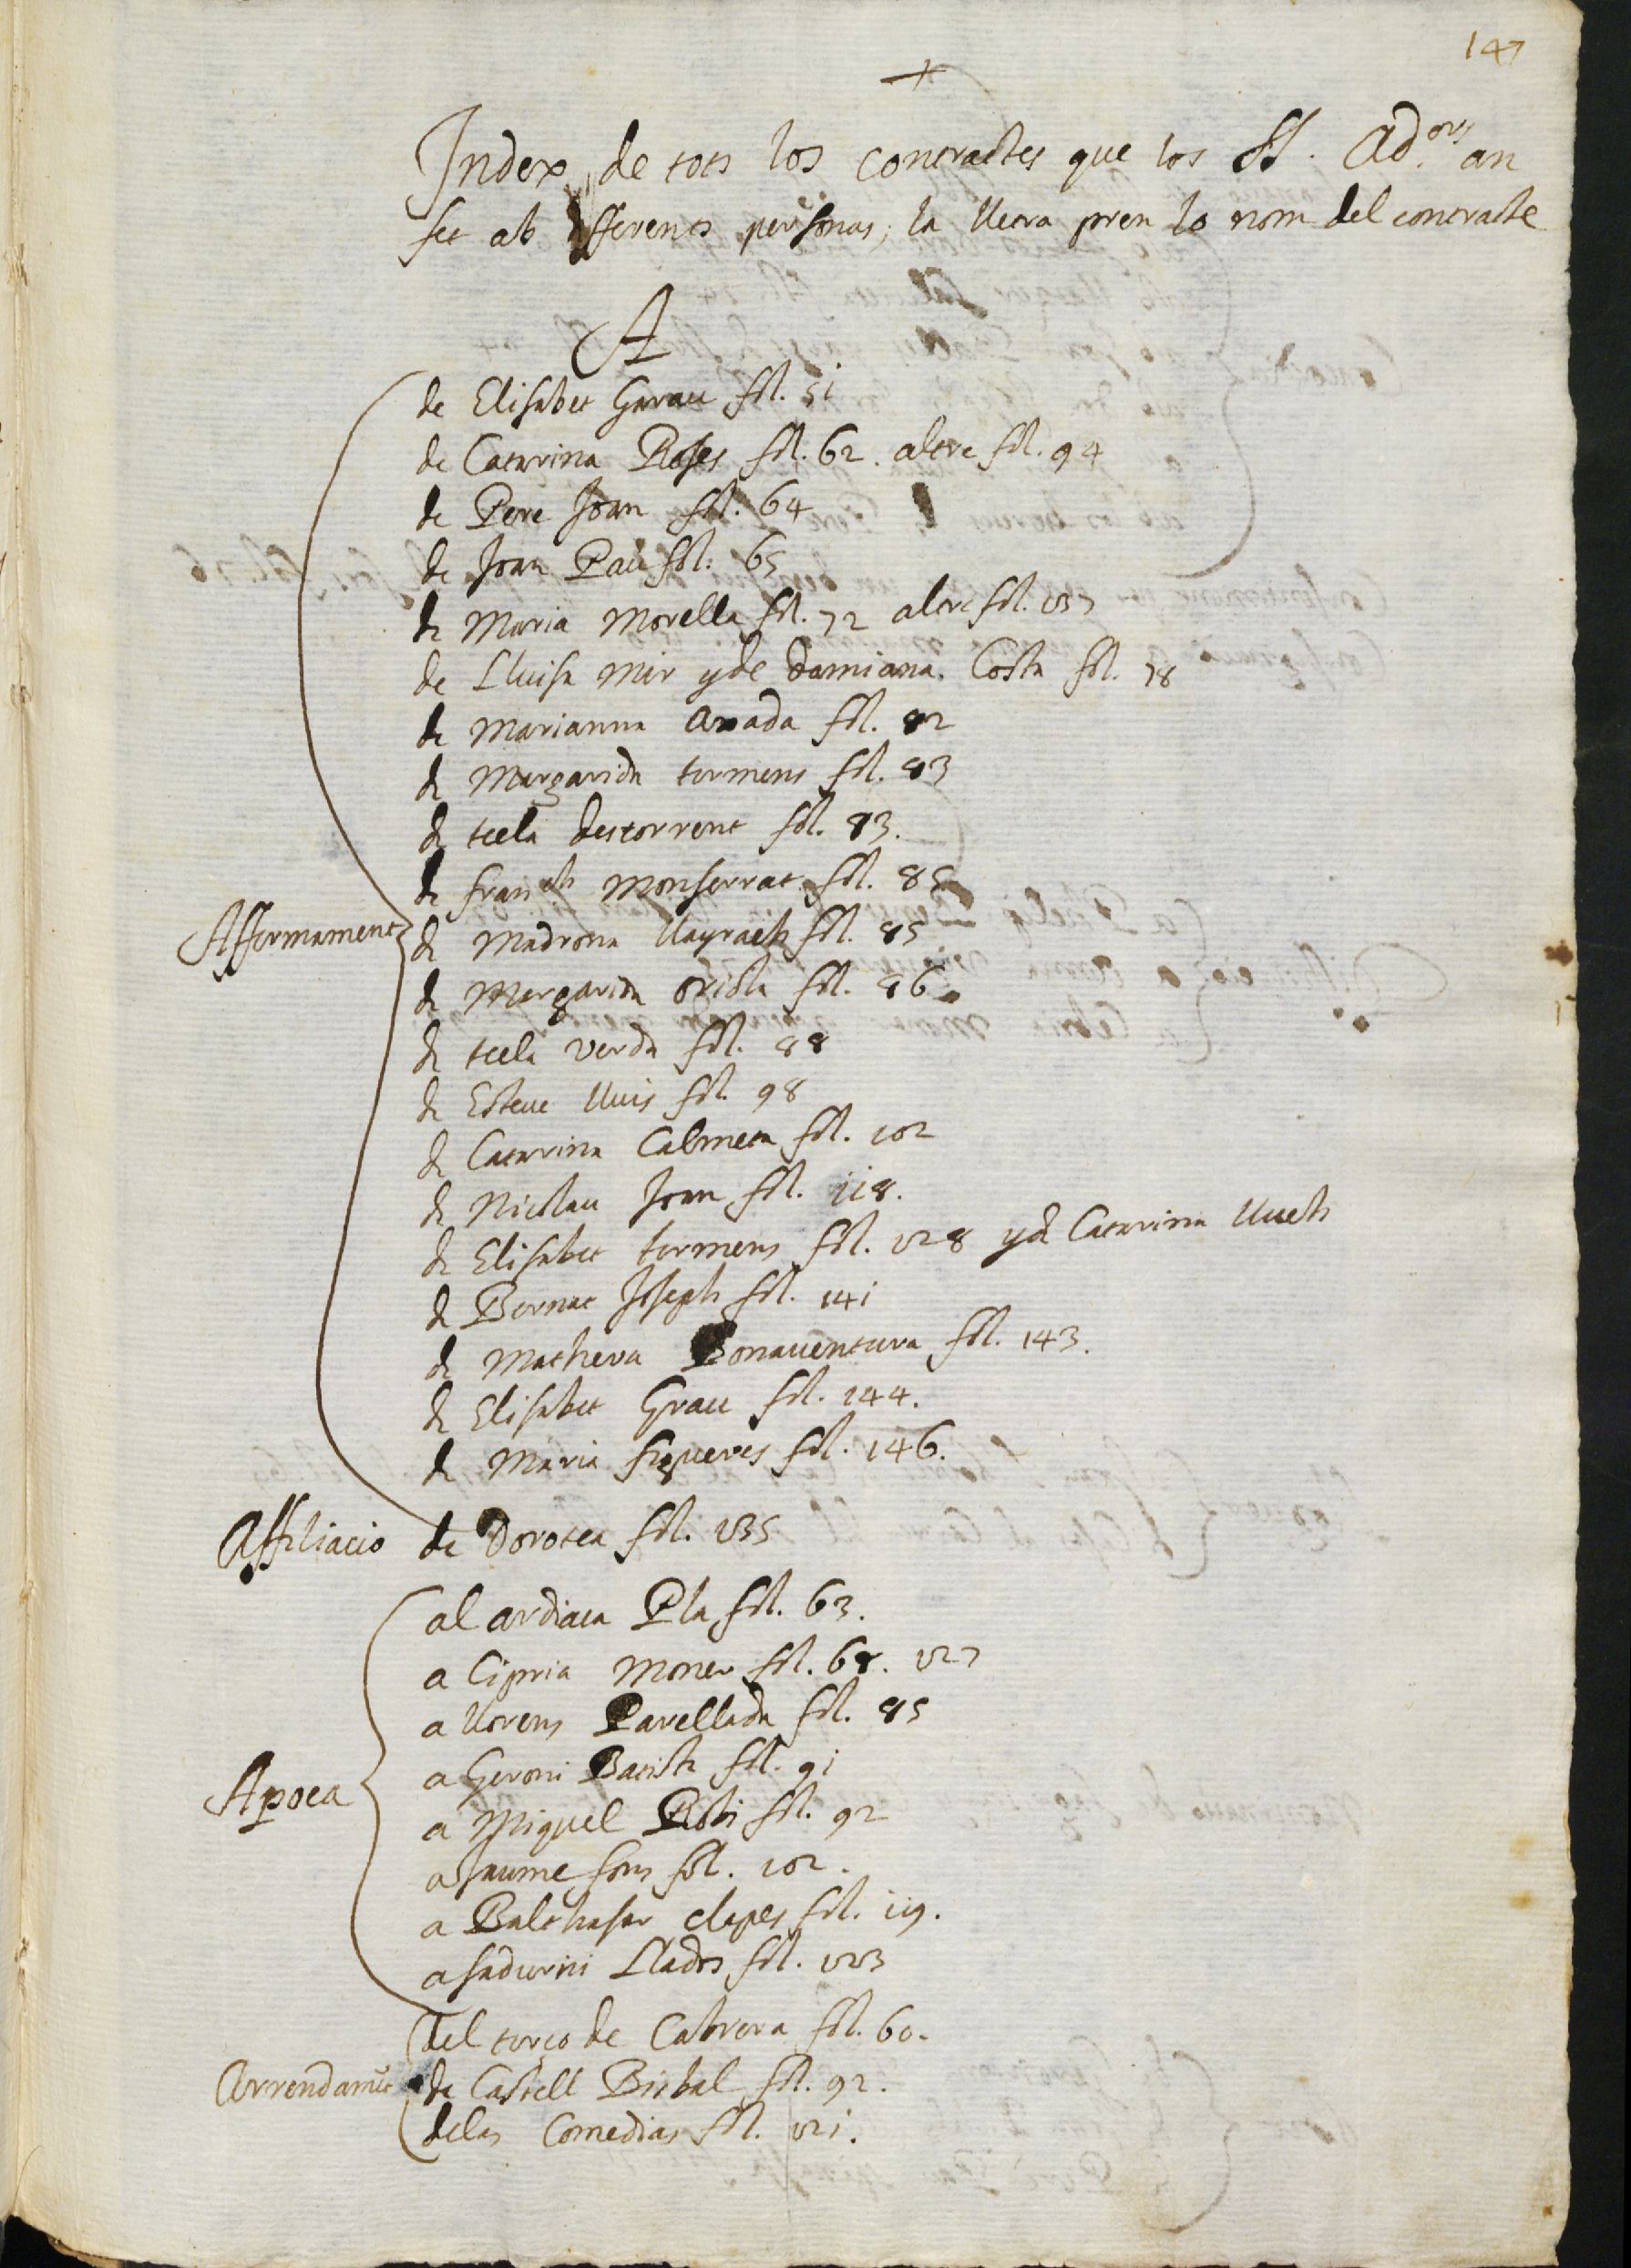 147
+
Index de tots los contractes que los SS. Ad.ors an
fet ab differents personas, la lletra pren lo nom del contracte
A
de Elisabet Garau fol. 51
de Catarina Roses fol. 62. altre fol. 94
de Pere Joan fol. 64
de Joan Pau fol. 65
de Maria Morella fol. 72 altre fol. 137
de Lluisa Mir y de Damiana Costa fol. 78
de Marianna Amada fol. 82
de Margarida tormens fol. 83
de tecla destorrent fol. 83.
de franch Monserrat fol. 85
Affermament de Madrona Llayrach fol. 85
de Margarida oriola fol. 86
de tecla verda fol. 88
de Esteve lluis fol. 98
de Catarina Calmeta fol. 102
de Nicolau Joan fol. 118.
de Elisabet tormens fol. 128 y de Catarina lluch
de Bernat Joseph fol. 141
de Matheva Bonaventura fol. 143.
de Elisabet Grau fol. 144.
de Maria figueres fol. 146.
Affiliacio de Dorotea fol. 135
al ardiaca Pla fol. 63.
a Cipria Moner fol. 68. 127
a llorens Parellada fol. 85
a Geroni Batista fol. 91
Apoca
a Miquel fol. 92
a Jaume fons fol. 102.
a Balthasar clapes fol. 119.
a sadurni Llados fol. 123
del terço de Cabrera fol. 60.
Arrendamt de Castell Bisbal fol. 92.
de las Comedias fol. 121.